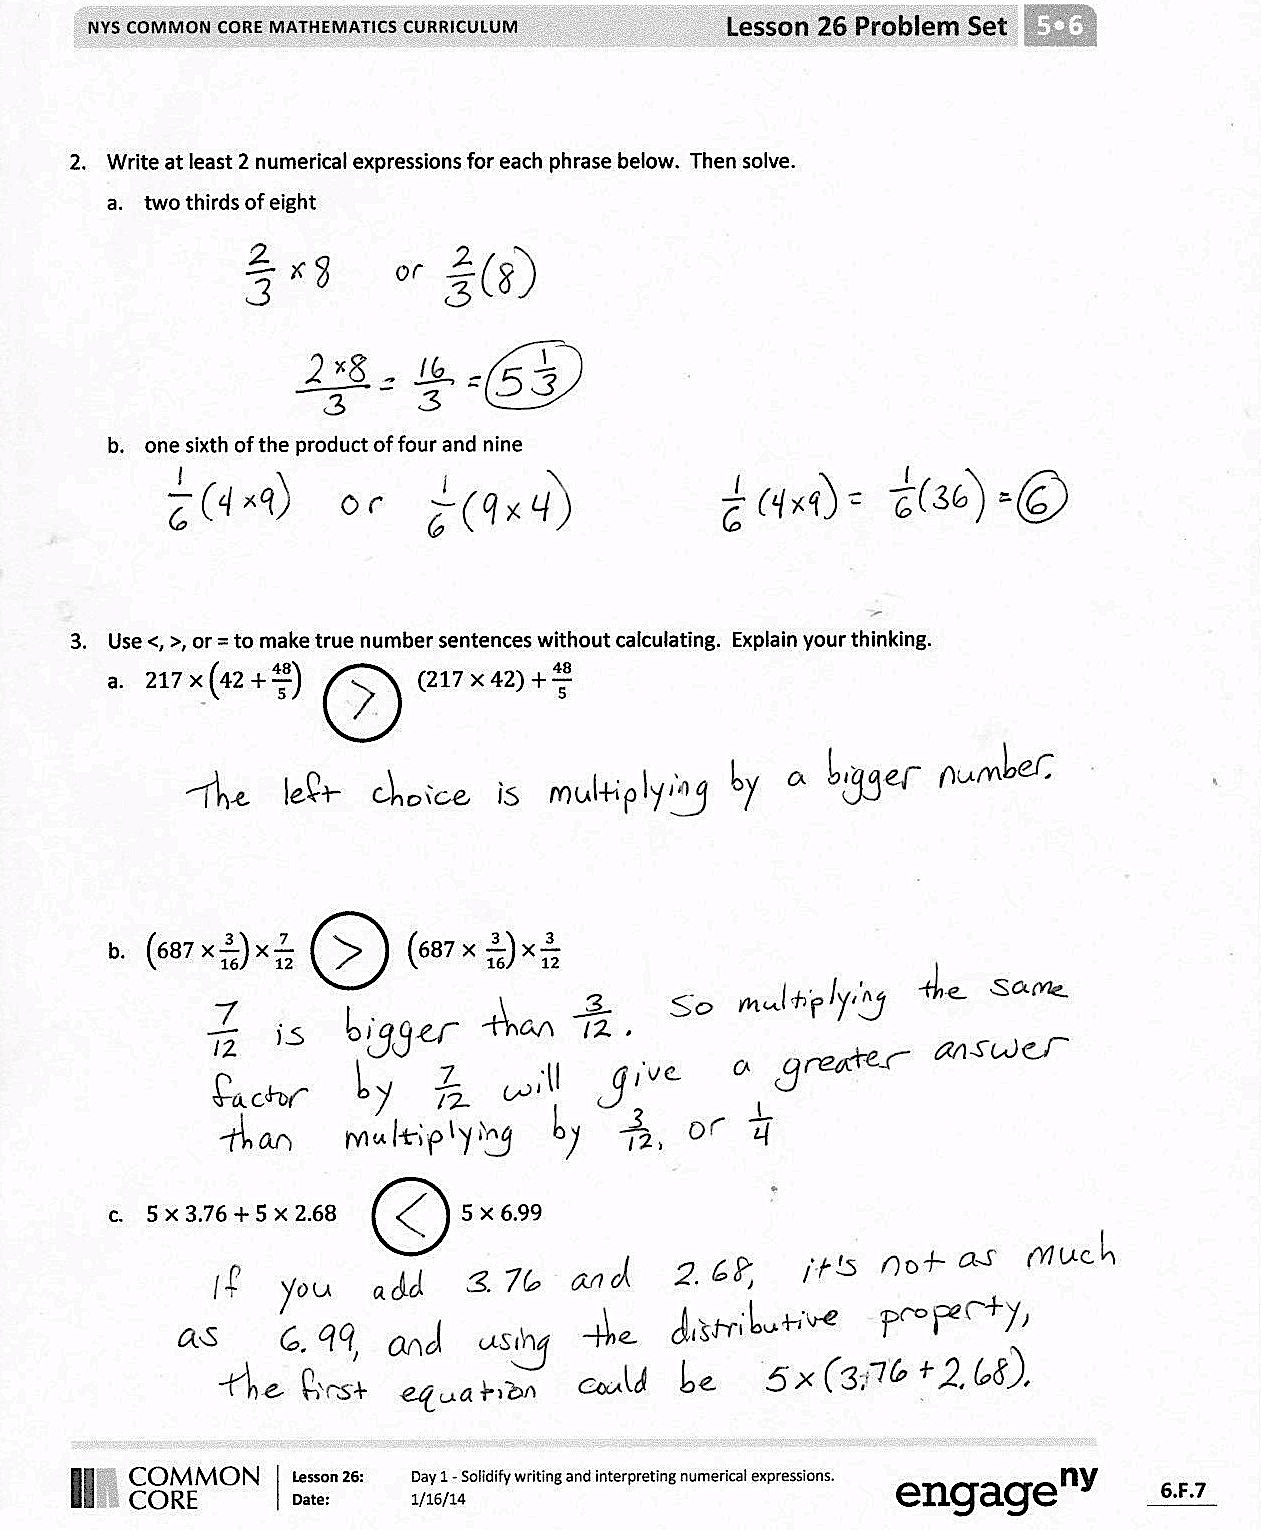 NYS COMMON CORE MATHEMATICS CURRICULUM Lesson 26 Problem Set 5•6
2. Write at least 2 numerical expressions for each phrase below. Then solve.
a. two thirds of eight
2/3 × 8 or 2/3 (8)
2×8/3 = 16/3 = 5 1/3
b. one sixth of the product of four and nine
1/6 (4×9) or 1/6 (9×4) 1/6 (4×9) = 1/6 (36) = 6
3. Use <, >, or = to make true number sentences without calculating. Explain your thinking.
a. 217 × (42 + 48/5) > (217 × 42) + 48/5
The left choice is multiplying by a bigger number.
b. (687 × 3/16) × 7/12 > (687 × 3/16) × 3/12
7/12 is bigger than 3/12. So multiplying the same
factor by 7/12 will give a greater answer
than multiplying by 3/12, or 1/4
c. 5 × 3.76 + 5 × 2.68 < 5 × 6.99
If you add 3.76 and 2.68, it's not as much
as 6.99, and using the distributive property,
the first equation could be 5×(3.76 + 2.68).
COMMON CORE Lesson 26: Day 1 - Solidify writing and interpreting numerical expressions.
Date: 1/16/14
engageny 6.F.7